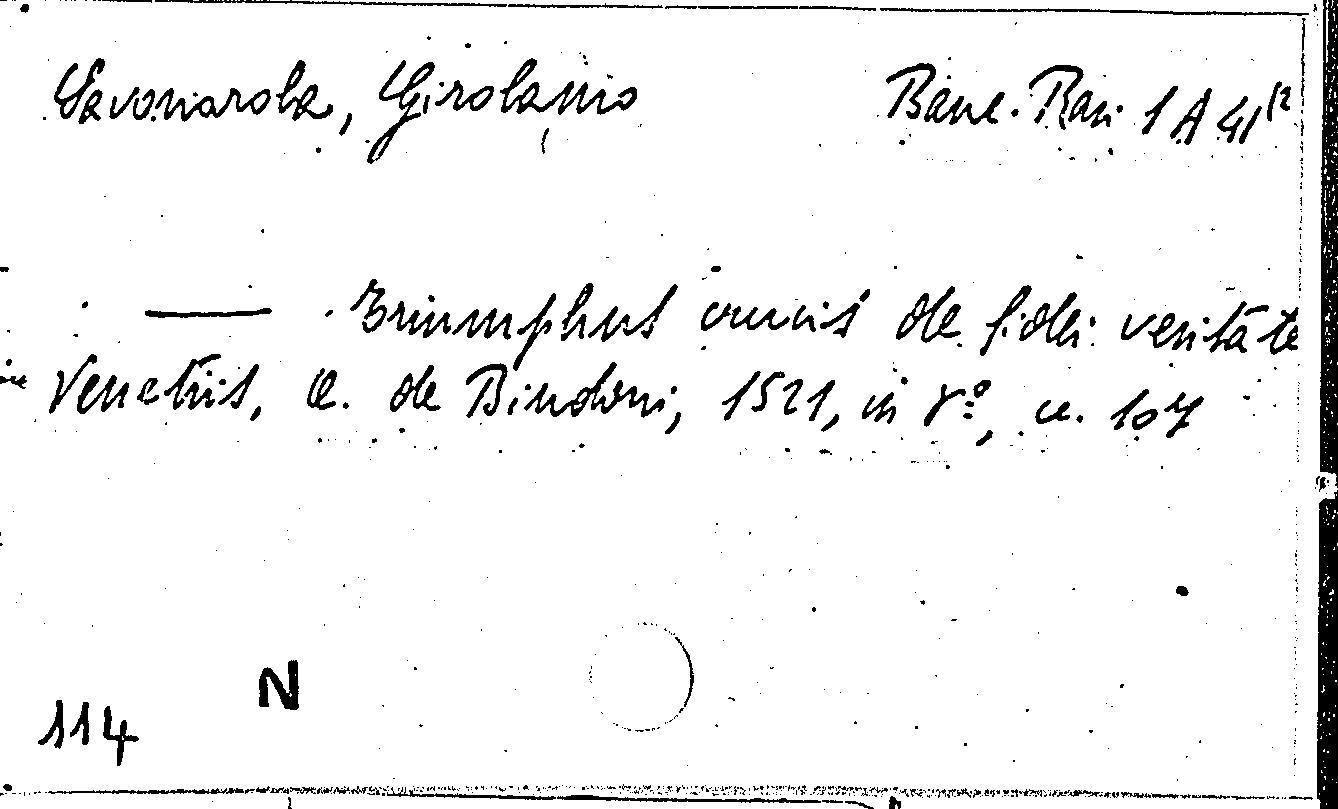 Savonarola, Girolamo Banc. Rari 1 A 41 (2
— Triumphus crucis de fidei veritate
Venetiis, A. de Bindoni, 1521, in 8º, cc. 107
N
114